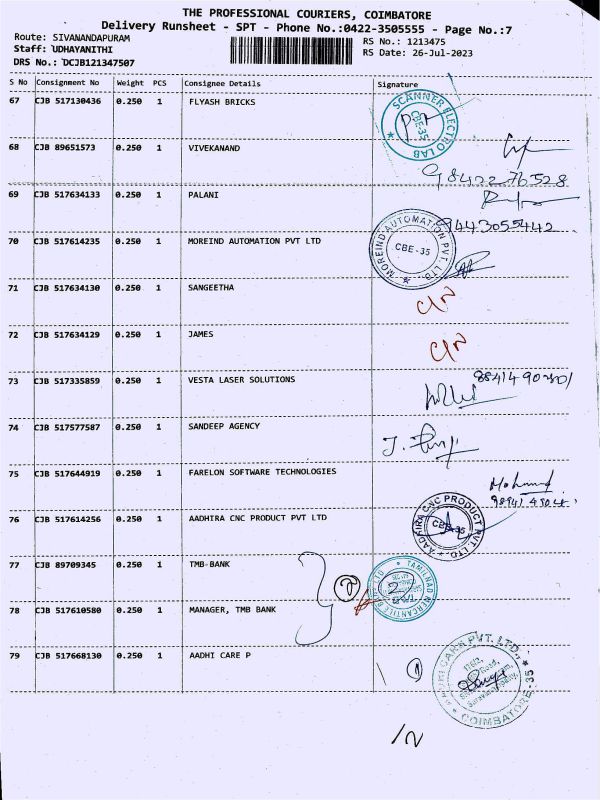 THE PROFESSIONAL COURIERS, COIMBATORE
Delivery Runsheet - SPT - Phone No.:0422-3505555 - Page No.:7
Route: SIVANANDAPURAM
RS No.: 1213475
Staff: UDHAYANITHI
RS Date: 26-Jul-2023
DRS No.: DCJB121347507
S No Consignment No Weight PCS Consignee Details Signature
67 CJB 517130436 0.250 1 FLYASH BRICKS
SCANNER ELECTRO LAB
CBE-35
68 CJB 89651573 0.250 1 VIVEKANAND
98422 76528
69 CJB 517634133 0.250 1 PALANI
9443055442
70 CJB 517614235 0.250 1 MOREIND AUTOMATION PVT LTD
MOREIND AUTOMATION PVT. LTD
CBE-35
71 CJB 517634130 0.250 1 SANGEETHA
C/N
72 CJB 517634129 0.250 1 JAMES
C/N
73 CJB 517335859 0.250 1 VESTA LASER SOLUTIONS
74 CJB 517577587 0.250 1 SANDEEP AGENCY
75 CJB 517644919 0.250 1 FARELON SOFTWARE TECHNOLOGIES
76 CJB 517614256 0.250 1 AADHIRA CNC PRODUCT PVT LTD
AADHIRA CNC PRODUCT PVT. LTD.
CBE-35
77 CJB 89709345 0.250 1 TMB-BANK
2
TAMILNAD MERCANTILE BANK LTD
78 CJB 517610580 0.250 1 MANAGER, TMB BANK
79 CJB 517668130 0.250 1 AADHI CARE P
1
CARE PVT. LTD.,
COIMBATORE-35